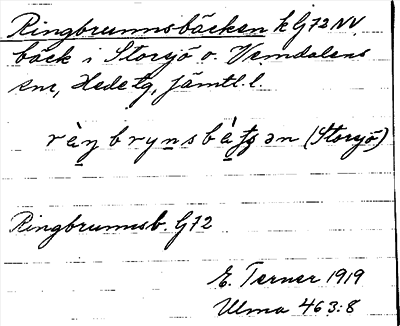 Ringbrunnsbäcken k G 72 NV.
bäck i Storsjö o. Vemdalens
snr, Hede tg, Jämtl. l.
(Storsjö)
Ringbrunnsb. G 72
E. Terner 1919
Ulma 463:8